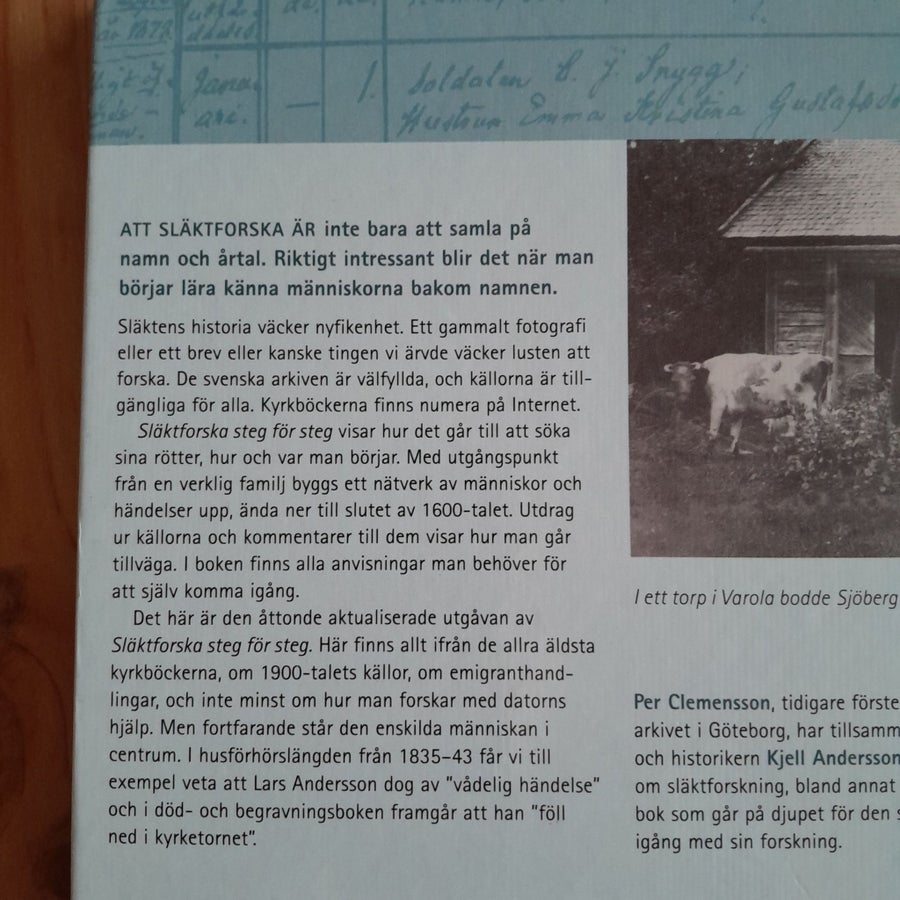 år 1873
Janu-
ari.
1.
Soldaten C. J. Snygg;
Hustrun Emma Kristina
ATT SLÄKTFORSKA ÄR inte bara att samla på
namn och årtal. Riktigt intressant blir det när man
börjar lära känna människorna bakom namnen.
Släktens historia väcker nyfikenhet. Ett gammalt fotografi
eller ett brev eller kanske tingen vi ärvde väcker lusten att
forska. De svenska arkiven är välfyllda, och källorna är till-
gängliga för alla. Kyrkböckerna finns numera på Internet.
Släktforska steg för steg visar hur det går till att söka
sina rötter, hur och var man börjar. Med utgångspunkt
från en verklig familj byggs ett nätverk av människor och
händelser upp, ända ner till slutet av 1600-talet. Utdrag
ur källorna och kommentarer till dem visar hur man går
tillväga. I boken finns alla anvisningar man behöver för
att själv komma igång.
Det här är den åttonde aktualiserade utgåvan av
Släktforska steg för steg. Här finns allt ifrån de allra äldsta
kyrkböckerna, om 1900-talets källor, om emigranthand-
lingar, och inte minst om hur man forskar med datorns
hjälp. Men fortfarande står den enskilda människan i
centrum. I husförhörslängden från 1835–43 får vi till
exempel veta att Lars Andersson dog av "vådelig händelse"
och i död- och begravningsboken framgår att han "föll
ned i kyrketornet".
I ett torp i Varola bodde Sjöberg
Per Clemensson, tidigare förste
arkivet i Göteborg, har tillsamm
och historikern Kjell Andersson
om släktforskning, bland annat
bok som går på djupet för den s
igång med sin forskning.